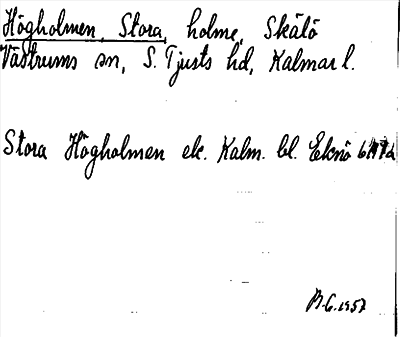 Högholmen, Stora, holme, Skälö
Västrums sn, S. Tjusts hd, Kalmar l.
Stora Högholmen ek. Kalm. bl. Eknö
B.G. 1957